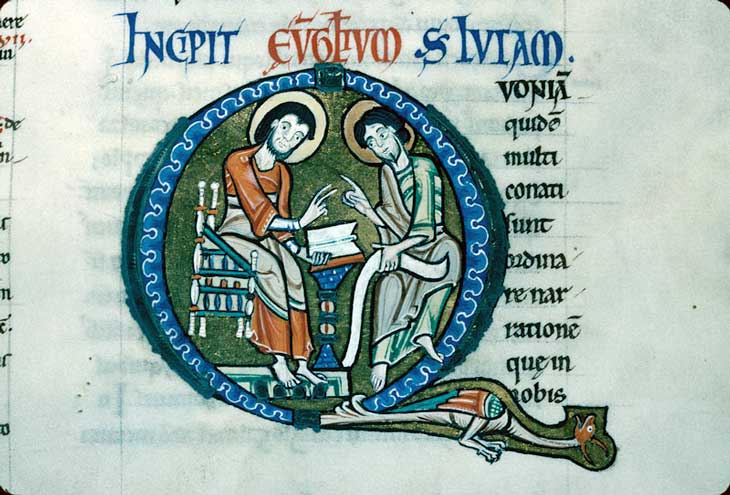 INCIPIT EV̄GLIUM S LUCAM.
VONIĀ
quidē
multi
conati
sunt
ordina
re nar
rationē
que in
nobis